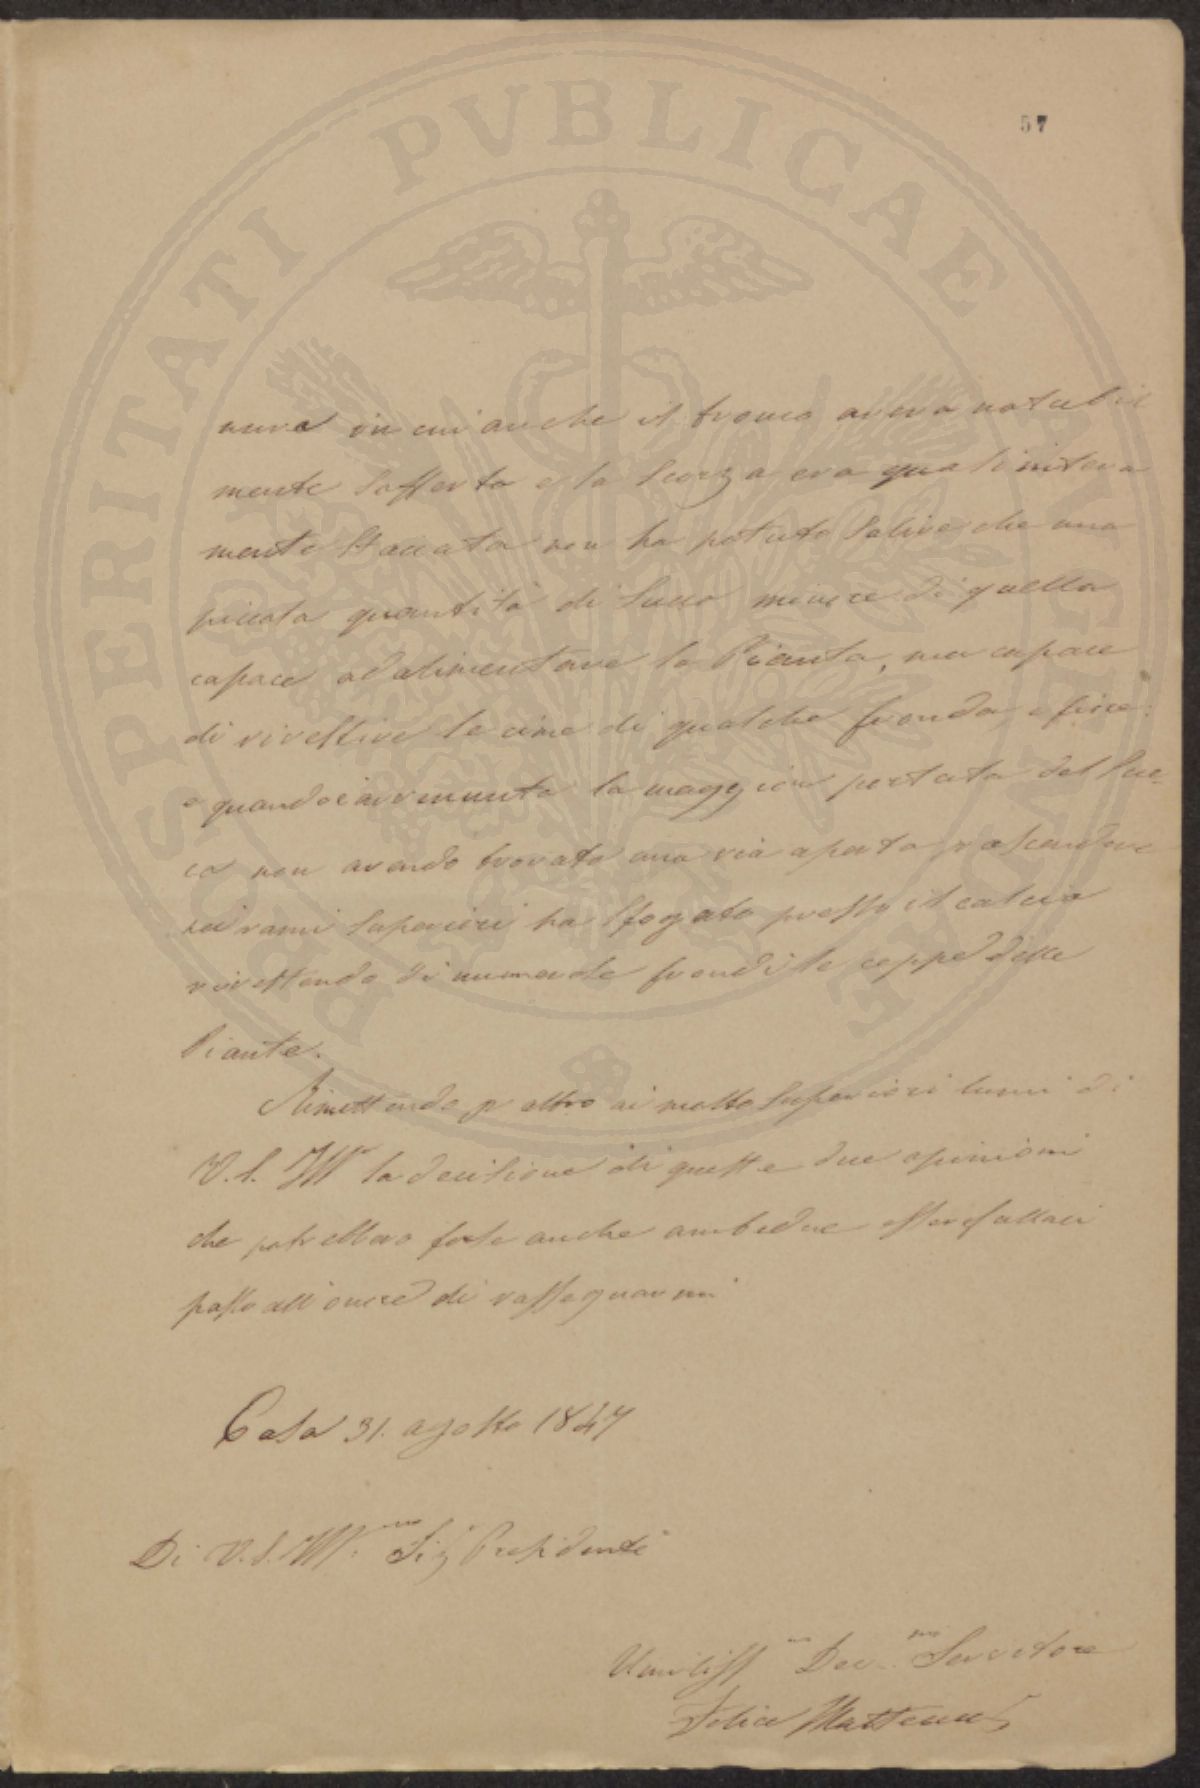 57
in cui anche il tronco aveva notabil
mente sofferto e la scorza era quasi intera
mente staccata non ha potuto salire che una
piccola quantità di succo minore di quella
capace ad alimentare la Pianta, ma capace
di rivestire le cime di qualche fronda, e fiore:
e quando la maggior portata del suc
co non avendo trovato una via aperta
rami superiori ha sfogato presso il calcio
rivestendo di frondi le ceppe delle
Piante.
Rimettendo p altro ai molto superiori lumi di
V. S. Ill la decisione di queste due opinioni
che potrebbero forse anche ambedue essere fallaci
passo all'onore di rassegnarmi
Casa 31. agosto 1847
Di V. S. Ill. mo Sig Presidente
Umiliss mo Dev. mo Servitore
Felice
PROSPERITATI PVBLICAE AVGENDAE